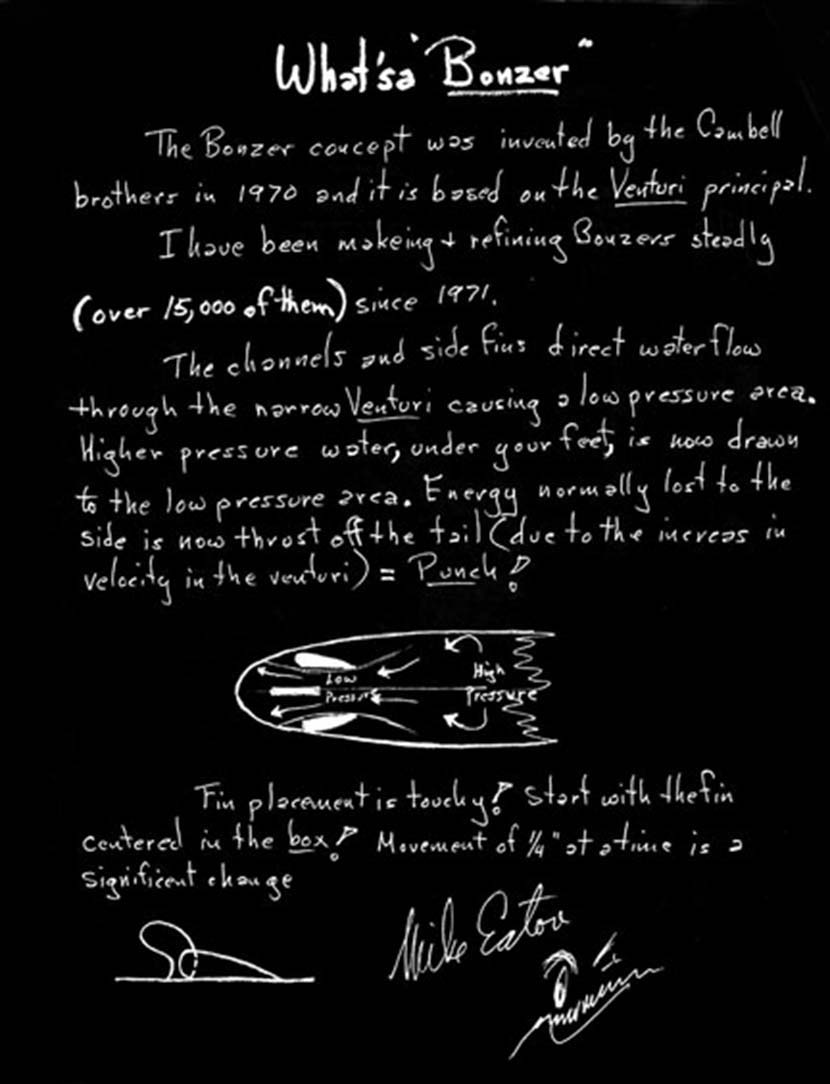 What'sa "Bonzer"
The Bonzer concept was invented by the Cambell
brothers in 1970 and it is based on the Venturi principal.
I have been makeing + refining Bonzers steadly
(over 15,000 of them) since 1971.
The channels and side fins direct water flow
through the narrow Venturi causing a low pressure area.
Higher pressure water, under your feet, is now drawn
to the low pressure area. Energy normally lost to the
side is now thrust off the tail (due to the increas in
velocity in the venturi) = Punch!
Low
Pressure
High
Pressure
Fin placement is touchy! Start with the fin
centered in the box! Movement of 1/4" at a time is a
significent change
Mike Eaton